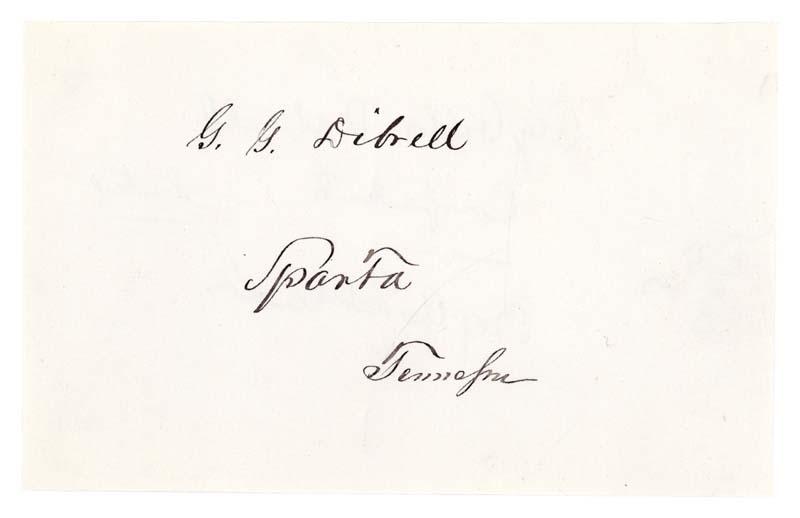 G. G. Dibrell
Sparta
Tennessee